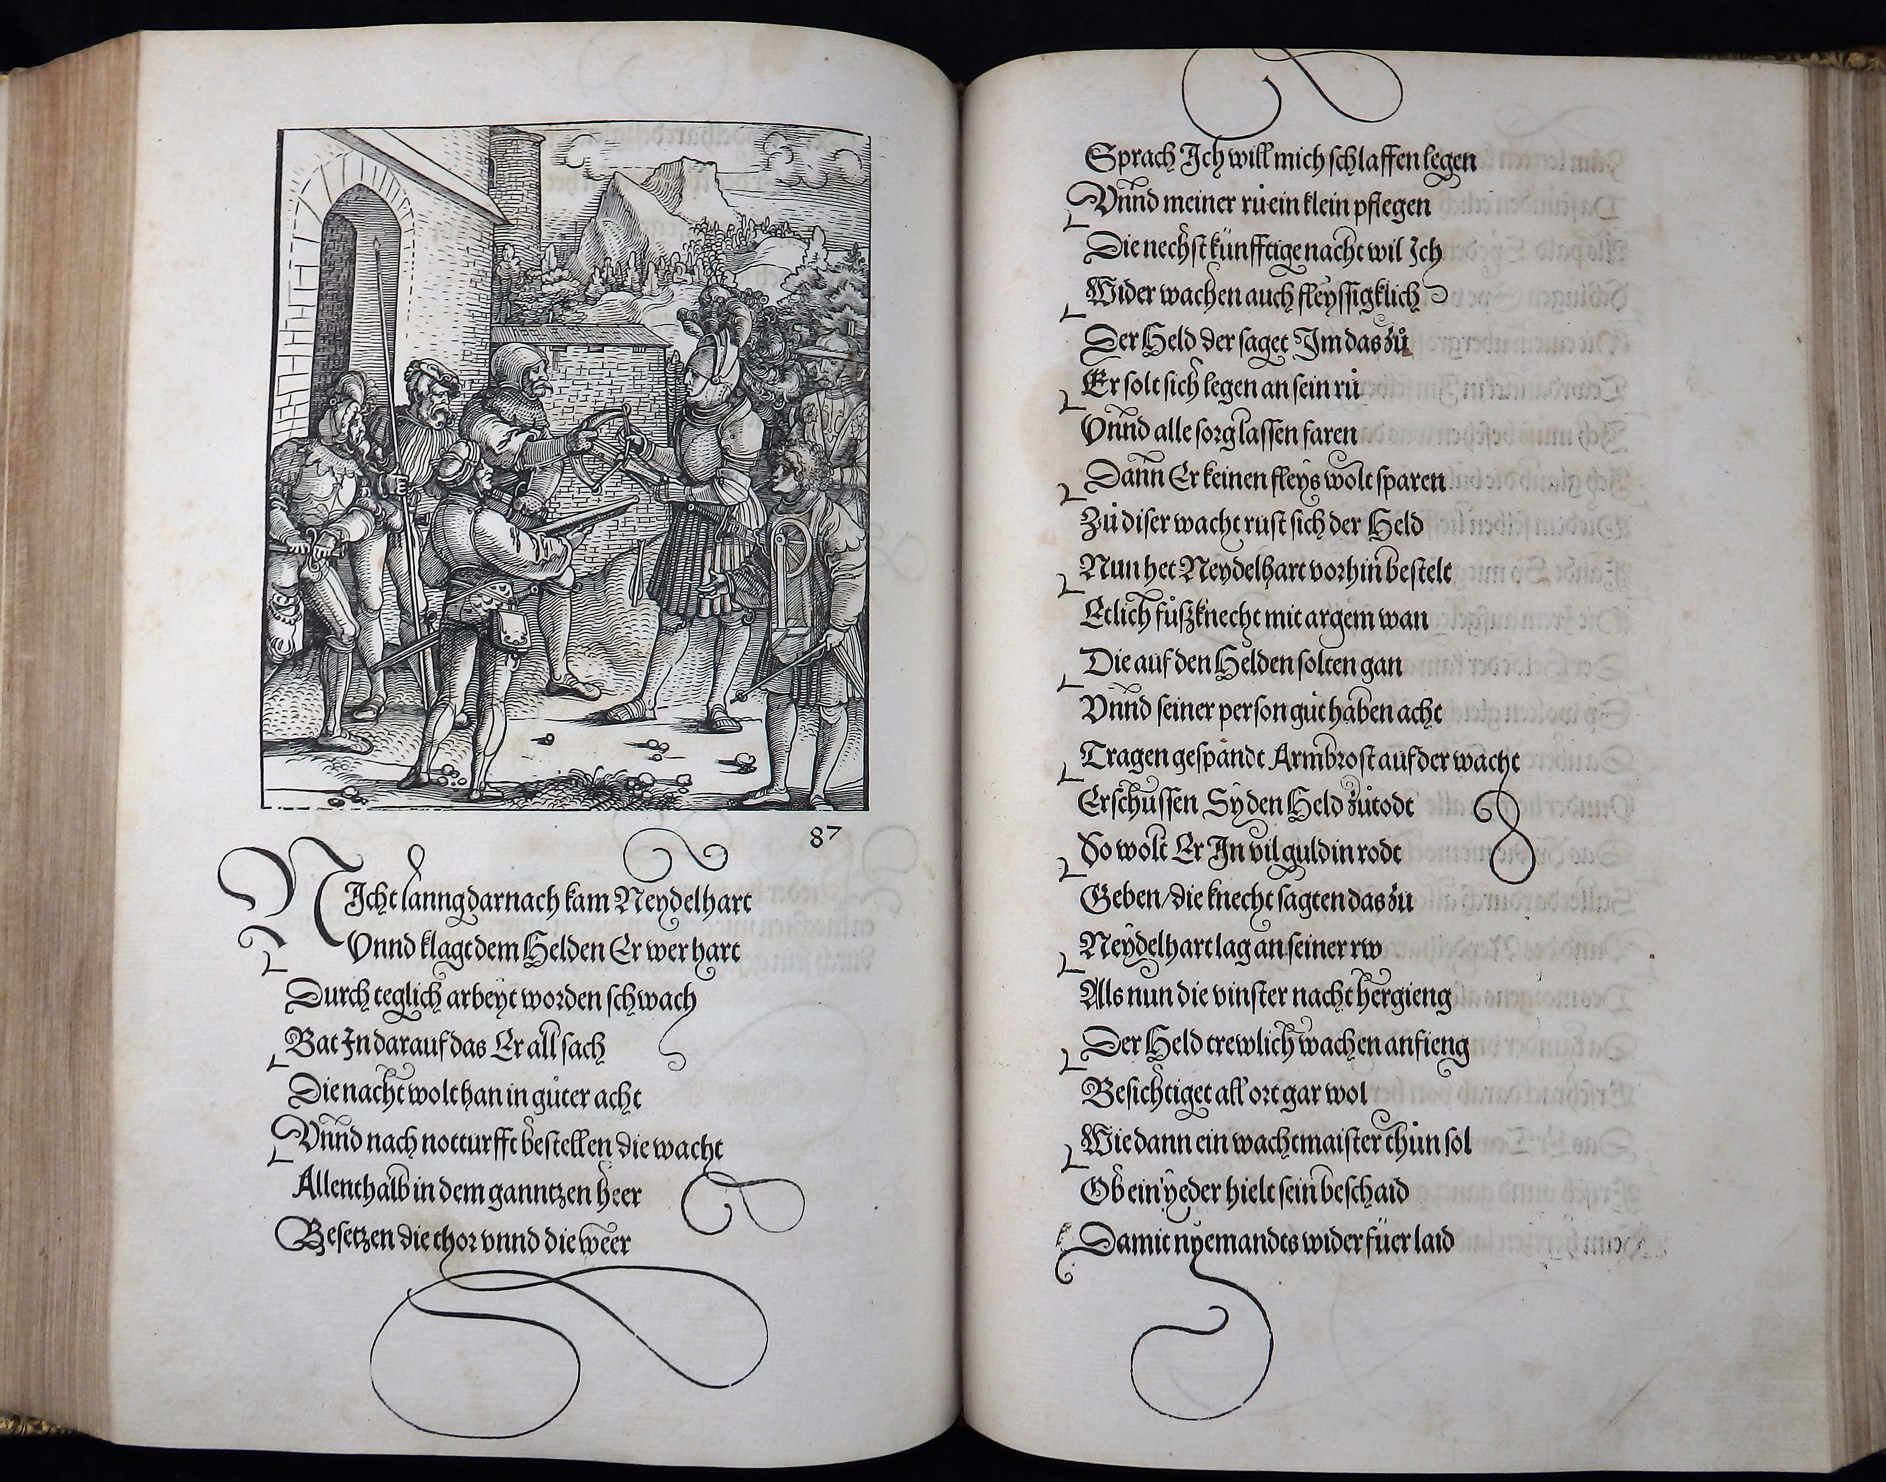 87
NIcht lanng darnach kam Neydelhart
Vnnd klagt dem Helden Er wer hart
Durch teglich arbeyt worden schwach
Bat In darauf das Er all sach
Die nacht wolt han in gůter acht
Vnnd nach notturfft bestellen die wacht
Allenthalb in dem ganntzen heer
Besetzen die thor vnnd die weer
Sprach Ich will mich schlaffen legen
Vnnd meiner rů ein klein pflegen
Die nechst künfftige nacht wil Ich
Wider wachen auch fleyssigklich
Der Held der saget Im das zů
Er solt sich legen an sein rů
Vnnd alle sorg lassen faren
Dann Er keinen fleys wolt sparen
Zů diser wacht rust sich der Held
Nun het Neydelhart vorhin bestelt
Etlich fůßknecht mit argem wan
Die auf den Helden solten gan
Vnnd seiner person gůt haben acht
Tragen gespandt Armbrost auf der wacht
Erschussen Sy den Held zůtodt
So wolt Er In vil guldin rodt
Geben/die knecht sagten das zů
Neydelhart lag an seiner rw
Als nun die vinster nacht hergieng
Der Held trewlich wachen anfieng
Besichtiget all ort gar wol
Wie dann ein wachtmaister thůn sol
Ob ein yeder hielt sein beschaid
Damit nyemandts widerfüer laid